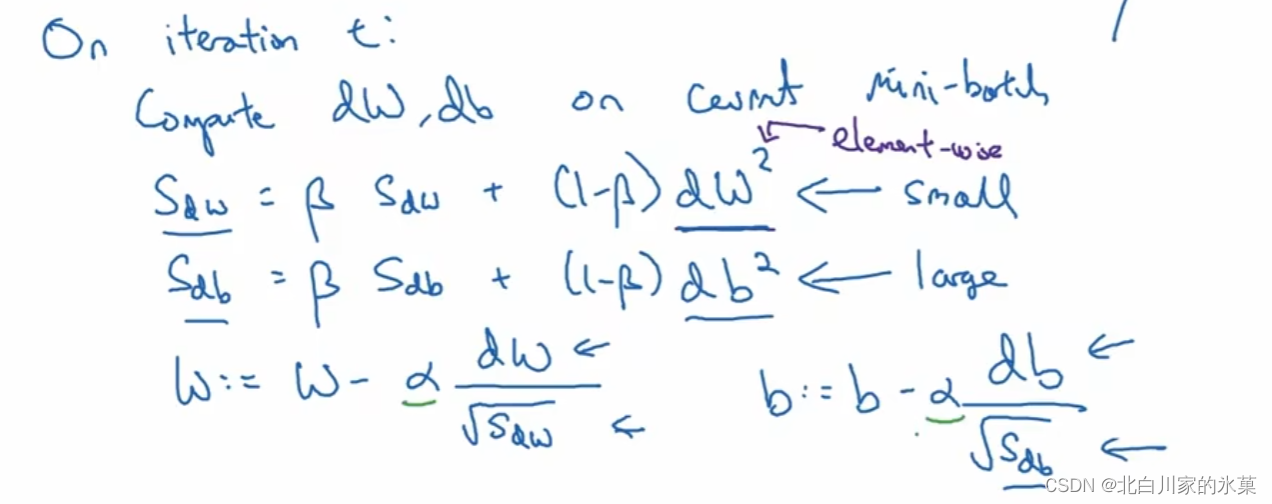 On iteration t:
Compute dW, db on current mini-batch
element-wise
S_dw = β S_dw + (1-β) dW² ← small
S_db = β S_db + (1-β) db² ← large
W := W - α dW/√S_dw ← b := b - α db/√S_db ←
CSDN @北白川家的氷菓